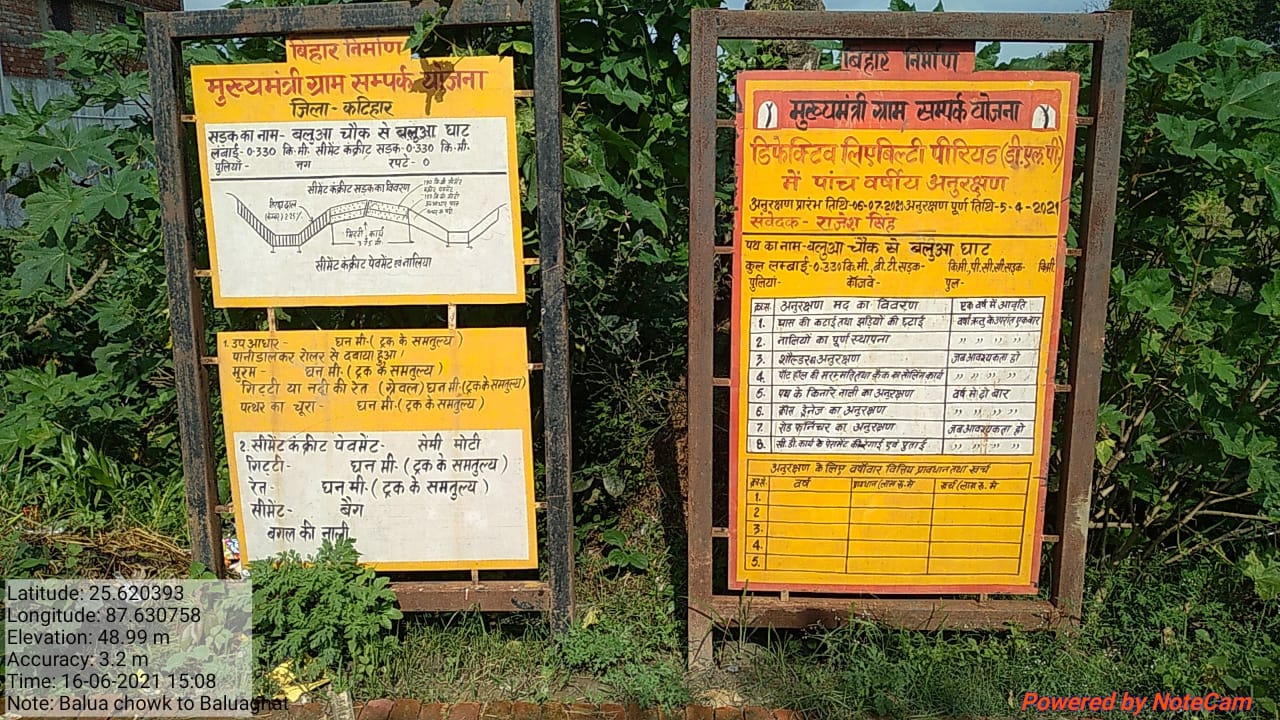 बिहार निर्माण
मुख्यमंत्री ग्राम सम्पर्क योजना
जिला - कटिहार
सड़क का नाम - बलुआ चौक से बलुआ घाट
लंबाई - 0.330 कि.मी. सीमेंट कंक्रीट सड़क - 0.330 कि.मी.
पुलिया - नग रपटे - 0
सीमेंट कंक्रीट सड़क का विवरण
मिट्टी कार्य
3.75 मी
सीमेंट कंक्रीट पेवमेंट एवं नालिया
1. उप आधार - घन मी. ( ट्रक के समतुल्य )
पानी डालकर रोलर से दबाया हुआ।
मुरम - घन मी. ( ट्रक के समतुल्य )
गिटटी या नदी की रेत ( ग्रेवल ) घन मी. ( ट्रक के समतुल्य )
पत्थर का चूरा - घन मी. ( ट्रक के समतुल्य )
2. सीमेंट कंक्रीट पेवमेंट - सेमी मोटी
गिटटी - घन मी. ( ट्रक के समतुल्य )
रेत - घन मी. ( ट्रक के समतुल्य )
सीमेंट - बैग
बगल की नाली
बिहार निर्माण
मुख्यमंत्री ग्राम सम्पर्क योजना
डिफेक्टिव लिएबिल्टी पीरियड (डी.एल.पी)
में पांच वर्षीय अनुरक्षण
अनुरक्षण प्रारंभ तिथि - 06-07-2021 अनुरक्षण पूर्ण तिथि - 5-4-2021
संवेदक - राजेश सिंह
पथ का नाम - बलुआ चौक से बलुआ घाट
कुल लम्बाई - 0.330 कि.मी., बी.टी. सड़क - कि.मी., पी.सी.सी. सड़क - किमी
पुलिया - कॉजवे - पुल -
क्र.सं. अनुरक्षण मद का विवरण एक वर्ष में आवृति
1. घास की कटाई तथा झड़ियों की छटाई वर्षा ऋतु के उपरांत एकबार
2. नालियों का पूर्ण स्थापना ,, ,, ,, ,,
3. शोल्डर अनुरक्षण जब आवश्यकता हो
4. पॉट होल की मरम्मरित तथा क्रैक का सीलिंग कार्य ,, ,, ,, ,,
5. पथ के किनारे नाली का अनुरक्षण वर्ष में दो बार
6. क्रॉस ड्रेनेज का अनुरक्षण ,, ,, ,, ,,
7. रोड फर्निचर का अनुरक्षण जब आवश्यकता हो
8. सी.डी. कार्य के पेरामेंट की रंगाई एवं पुताई ,, ,, ,, ,,
अनुरक्षण के लिए वर्षवार वित्तिय प्रावधान तथा खर्च
क्र.सं. वर्ष प्रावधान (लाख रू. मे खर्च (लाख रू. मे
1.
2.
3.
4.
5.
Latitude: 25.620393
Longitude: 87.630758
Elevation: 48.99 m
Accuracy: 3.2 m
Time: 16-06-2021 15:08
Note: Balua chowk to Baluaghat
Powered by NoteCam